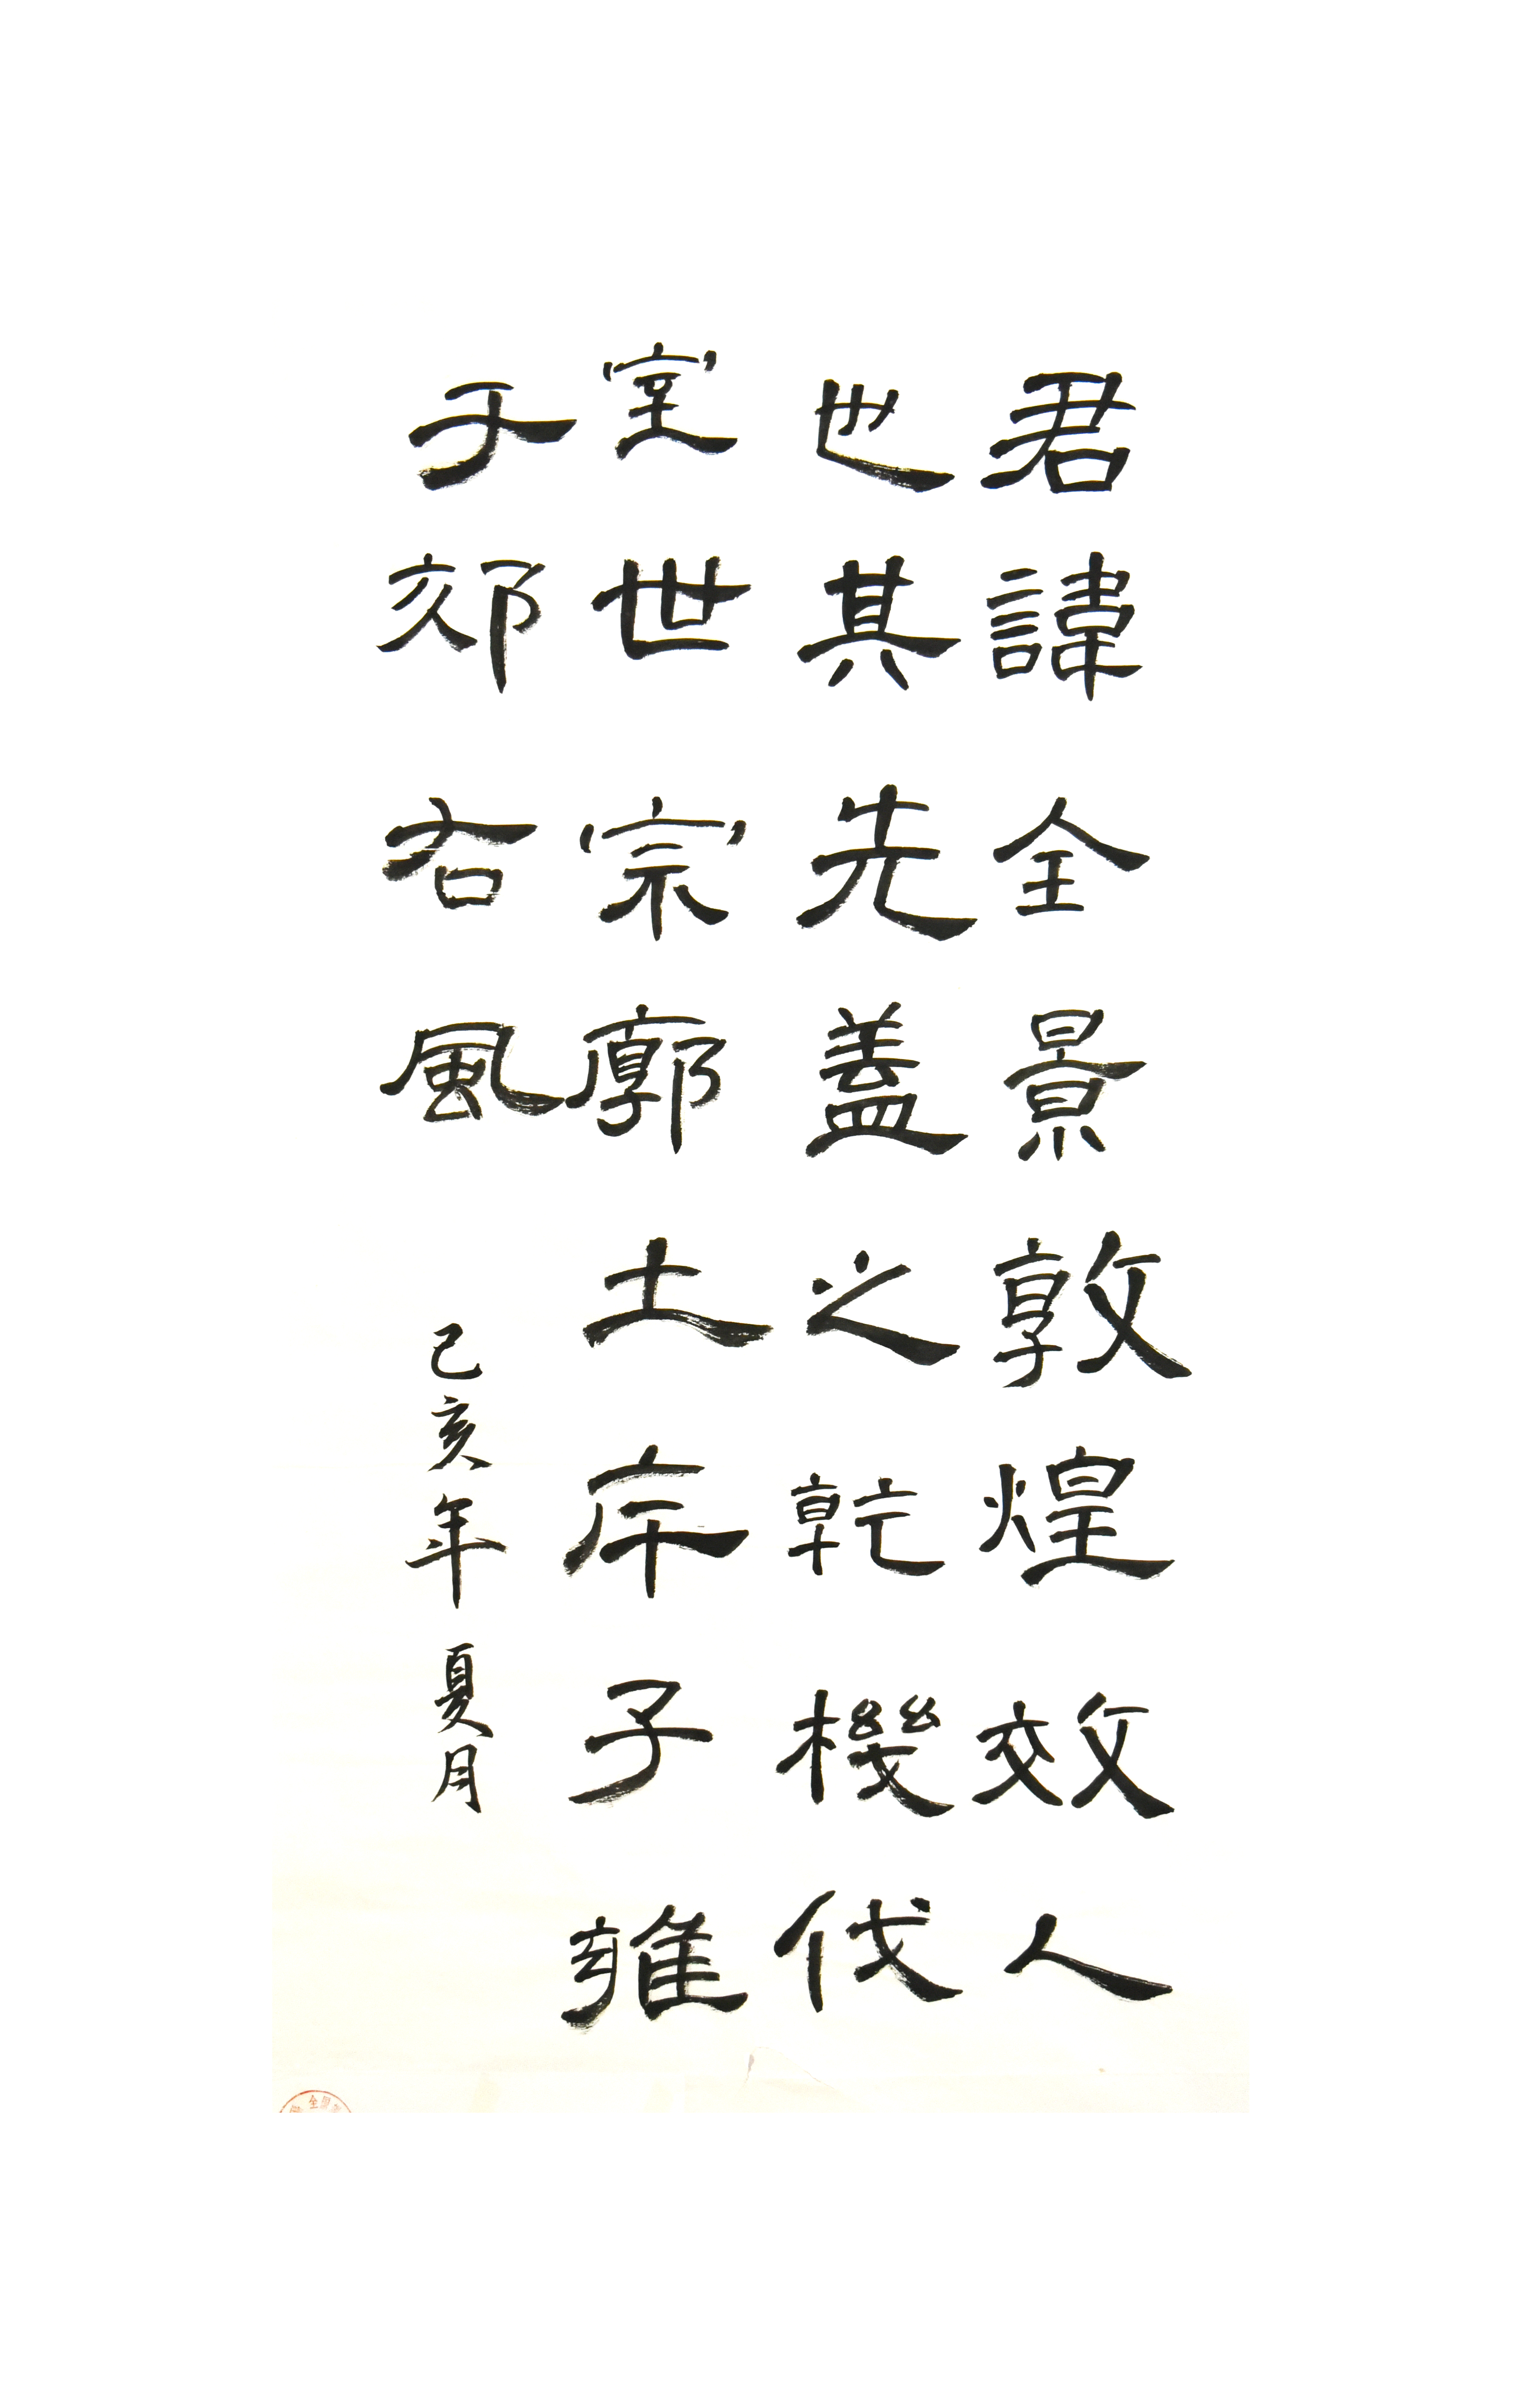 君諱全景敦煌效人
也其先蓋之乾機伐
室世宗廓土斥子雍
于郊右風
己亥年夏月